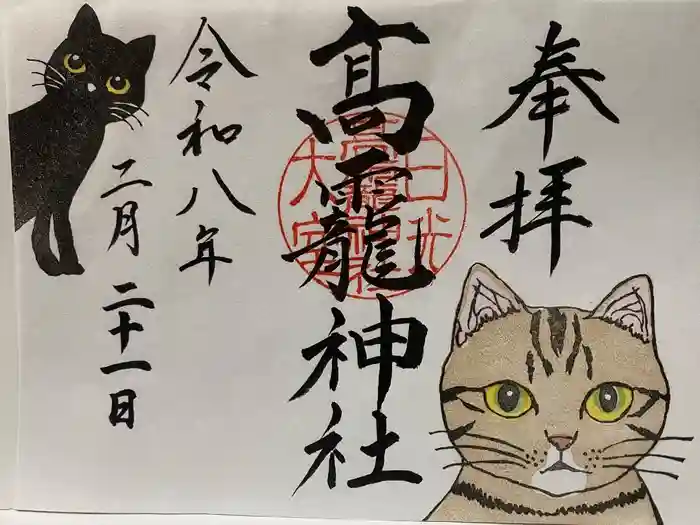 奉拝
高龗神社
日光
大室
高龗神社
令和八年
二月二十一日